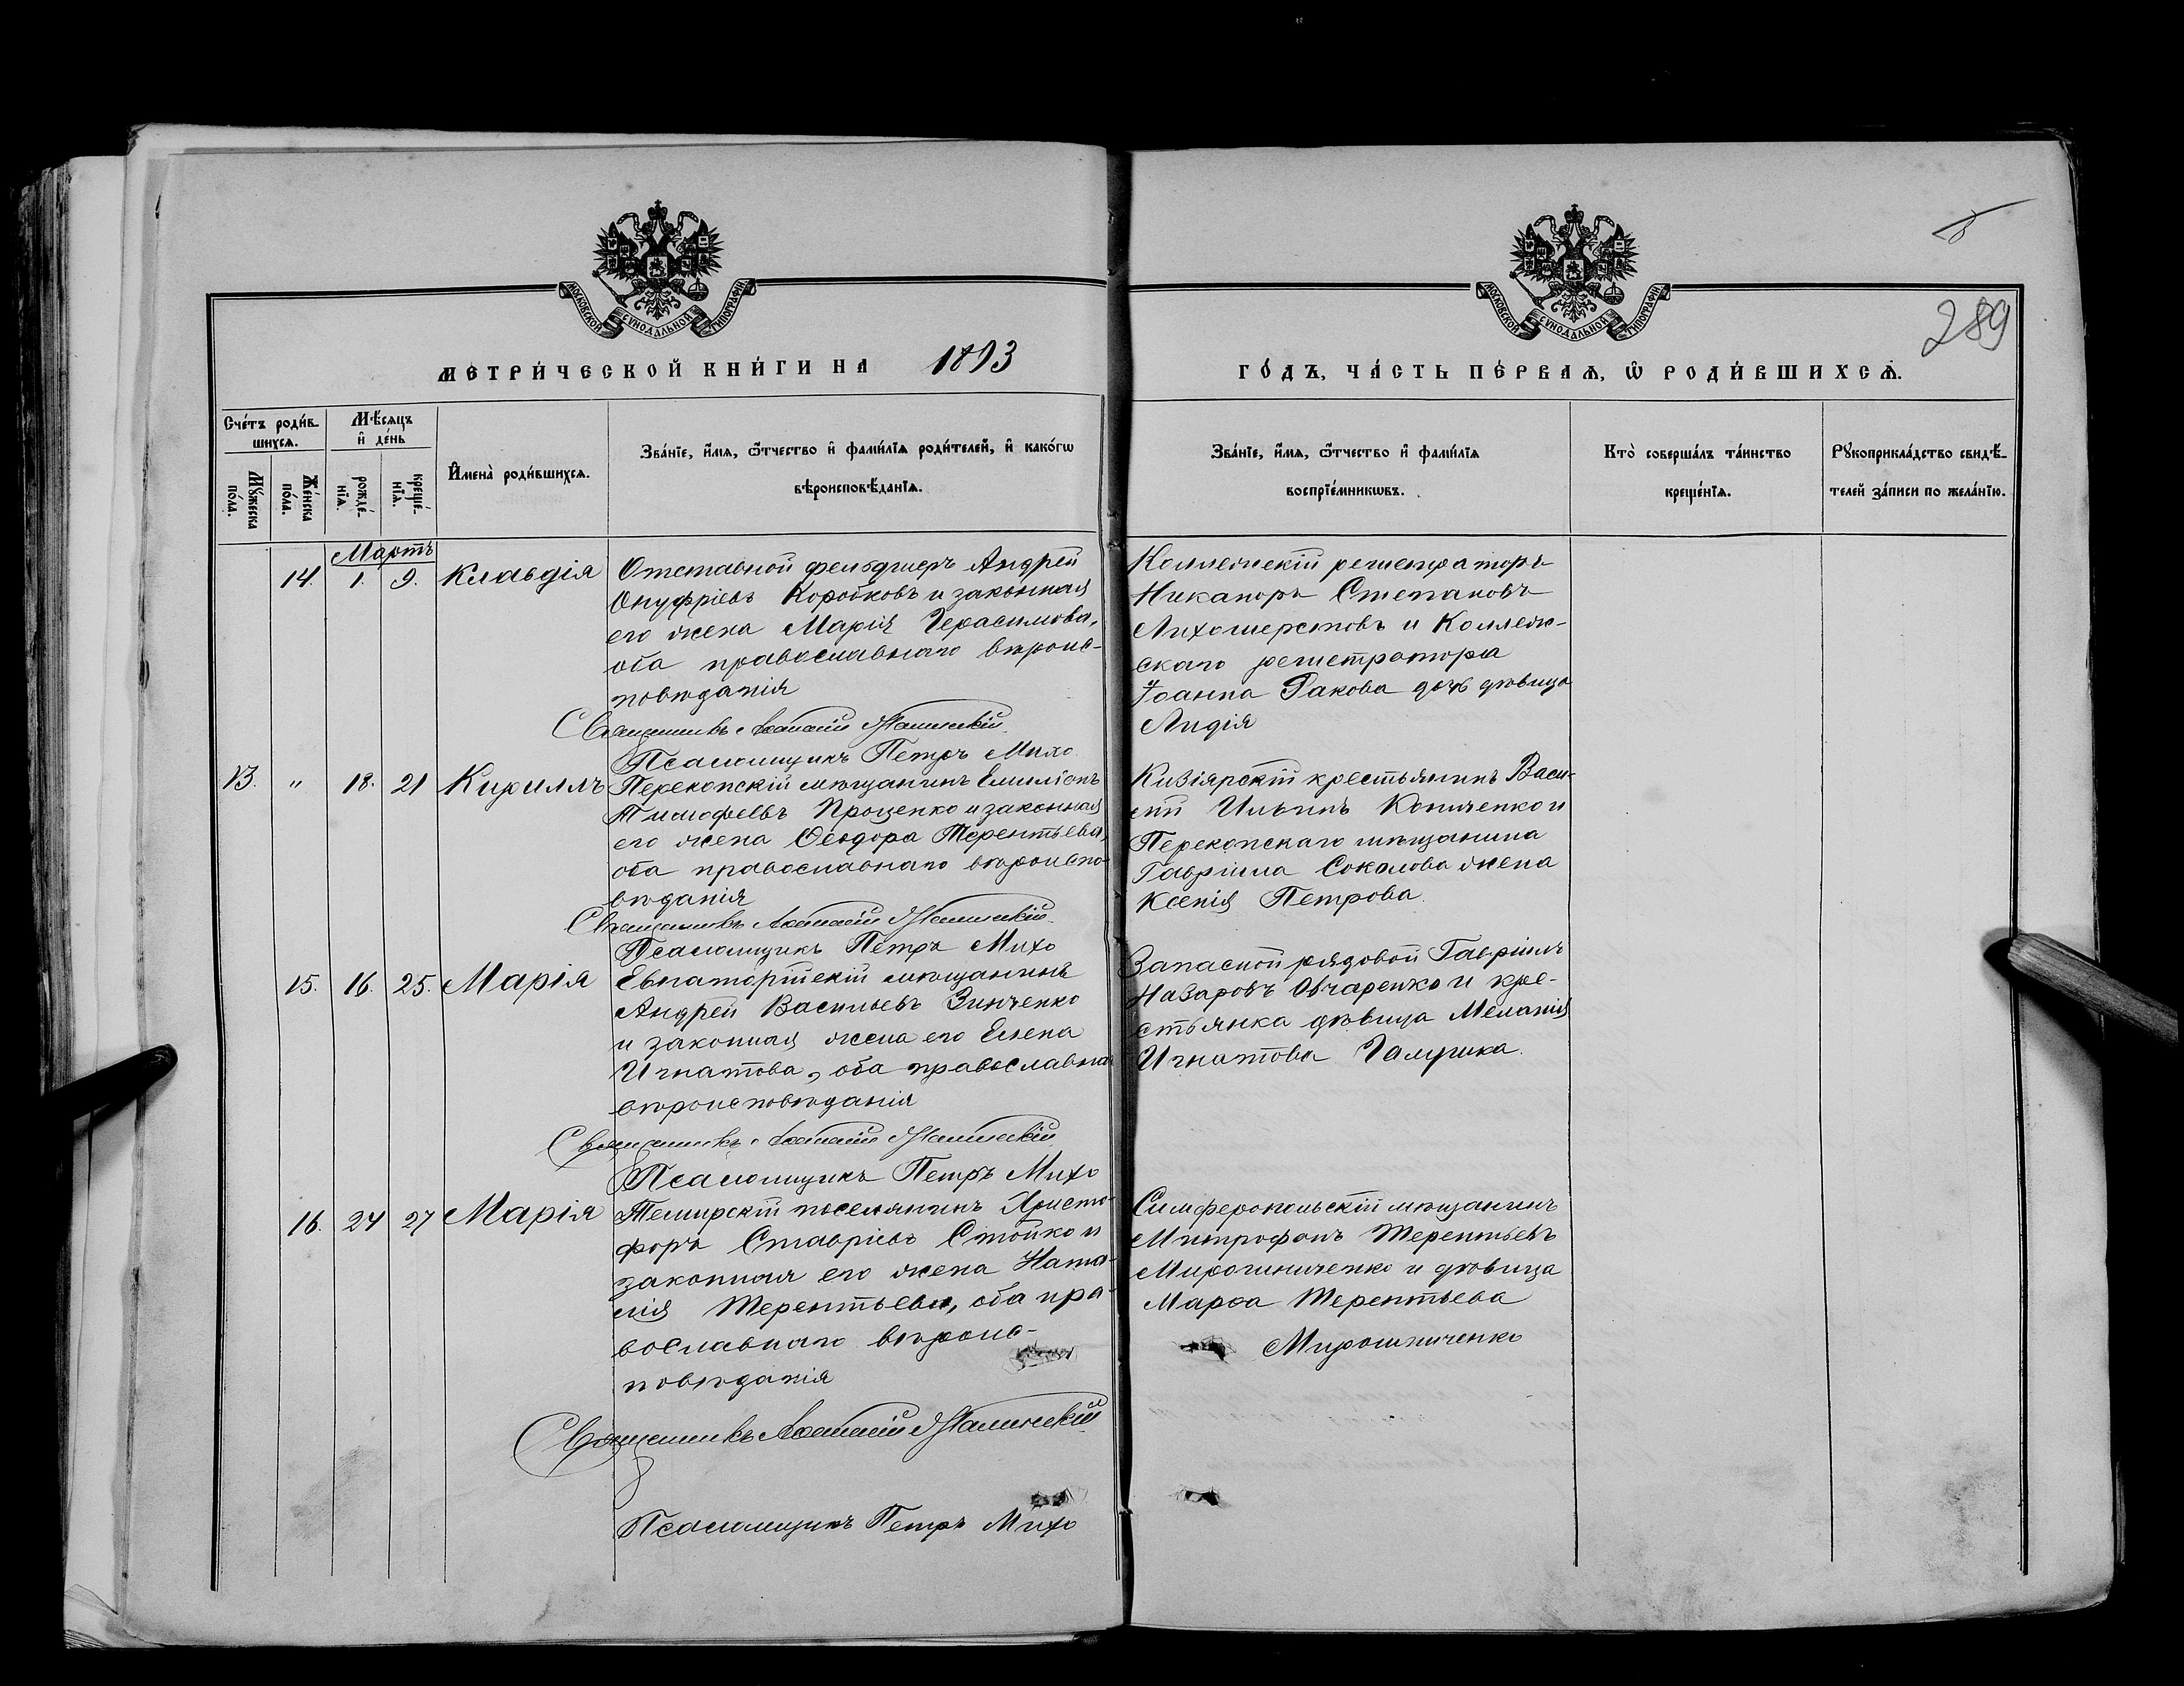 МОСКОВСКОЙ СѴНОДАЛЬНОЙ ТИПОГРАФІИ
МОСКОВСКОЙ СѴНОДАЛЬНОЙ ТИПОГРАФІИ
289
МЕТРИ́ЧЕСКОЙ КНИ́ГИ НА 1893
ГО́ДЪ, ЧА́СТЬ ПЕ́РВАѦ, Ѡ҆ РОДИ́ВШИХСѦ.
Сче́тъ роди́в-
шихсѧ.
Мѣ́сѧцъ
и҆ де́нь
Мꙋ́жеска по́ла.
Же́нска по́ла.
рожде́-
нїѧ.
креще́-
нїѧ.
И҆мена̀ роди́вшихсѧ.
Зва́нїе, и҆́мѧ, ѻ҆́тчество и҆ фами́лїѧ роди́телей, и҆ како́гѡ
вѣроисповѣ́данїѧ.
Зва́нїе, и҆́мѧ, ѻ҆́тчество и҆ фами́лїѧ
воспрїе́мникѡвъ.
Кто̀ соверша́лъ та́инство
креще́нїѧ.
Рꙋкоприкла́дство свидѣ́-
телей за́писи по жела́нїю.
Мартъ
14. 1. 9. Клавдія
Отставной фельдшеръ Андрей
Онуфріевъ Коробковъ и законная
его жена Марія Герасимова,
оба православнаго вѣроис-
повѣданія
Священникъ
Псаломщикъ Петръ Михо
Коллежскій регистраторъ
Никаноръ Степановъ
Лихошерстовъ и Коллеж-
скаго регистратора
Іоанна Ракова дочь дѣвица
Лидія
13. " 18. 21 Кириллъ
Перекопскій мѣщанинъ Емиліанъ
Тимофеевъ Проценко и законная
его жена Ѳеодора Терентьева,
оба православнаго вѣроиспо-
вѣданія
Священникъ
Псаломщикъ Петръ Михо
Кизіярскій крестьянинъ Васи-
лій Ильинъ Коптенко и
Перекопскаго мѣщанина
Гавріила Соколова жена
Ксенія Петрова.
15. 16. 25. Марія
Евпаторійскій мѣщанинъ
Андрей Васильевъ Зинченко
и законная жена его Елена
Игнатова, оба православна
вѣроисповѣданія
Священникъ
Псаломщикъ Петръ Михо
Запасной рядовой Гавріилъ
Назаровъ Овчаренко и кре-
стьянка дѣвица Меланія
Игнатова
16. 24 27 Марія
Темирскій поселянинъ Христо-
форъ Ставріевъ Стойко и
законная его жена Ната-
лія Терентьева, оба пра-
вославнаго вѣроис-
повѣданія
Священникъ
Псаломщикъ Петръ Михо
Симферопольскій мѣщанинъ
Митрофанъ Терентьевъ
Мирошниченко и дѣвица
Марѳа Терентьева
Мирошниченко